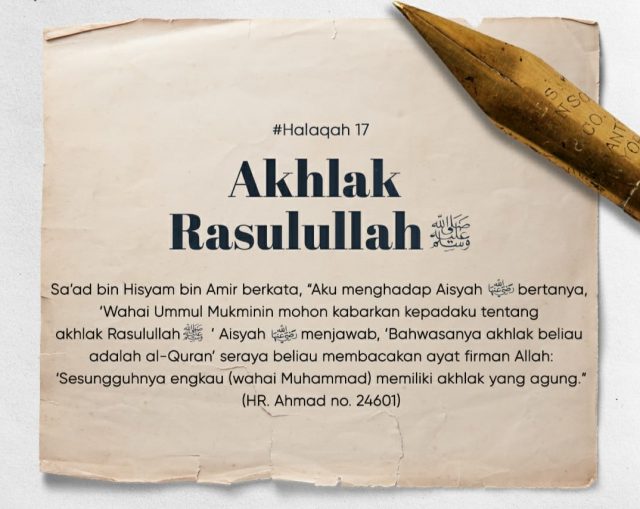 #Halaqah 17
Akhlak
Rasulullah ﷺ
Sa'ad bin Hisyam bin Amir berkata, "Aku menghadap Aisyah رضي الله عنها bertanya,
'Wahai Ummul Mukminin mohon kabarkan kepadaku tentang
akhlak Rasulullah ﷺ ' Aisyah رضي الله عنها menjawab, 'Bahwasanya akhlak beliau
adalah al-Quran' seraya beliau membacakan ayat firman Allah:
'Sesungguhnya engkau (wahai Muhammad) memiliki akhlak yang agung."
(HR. Ahmad no. 24601)